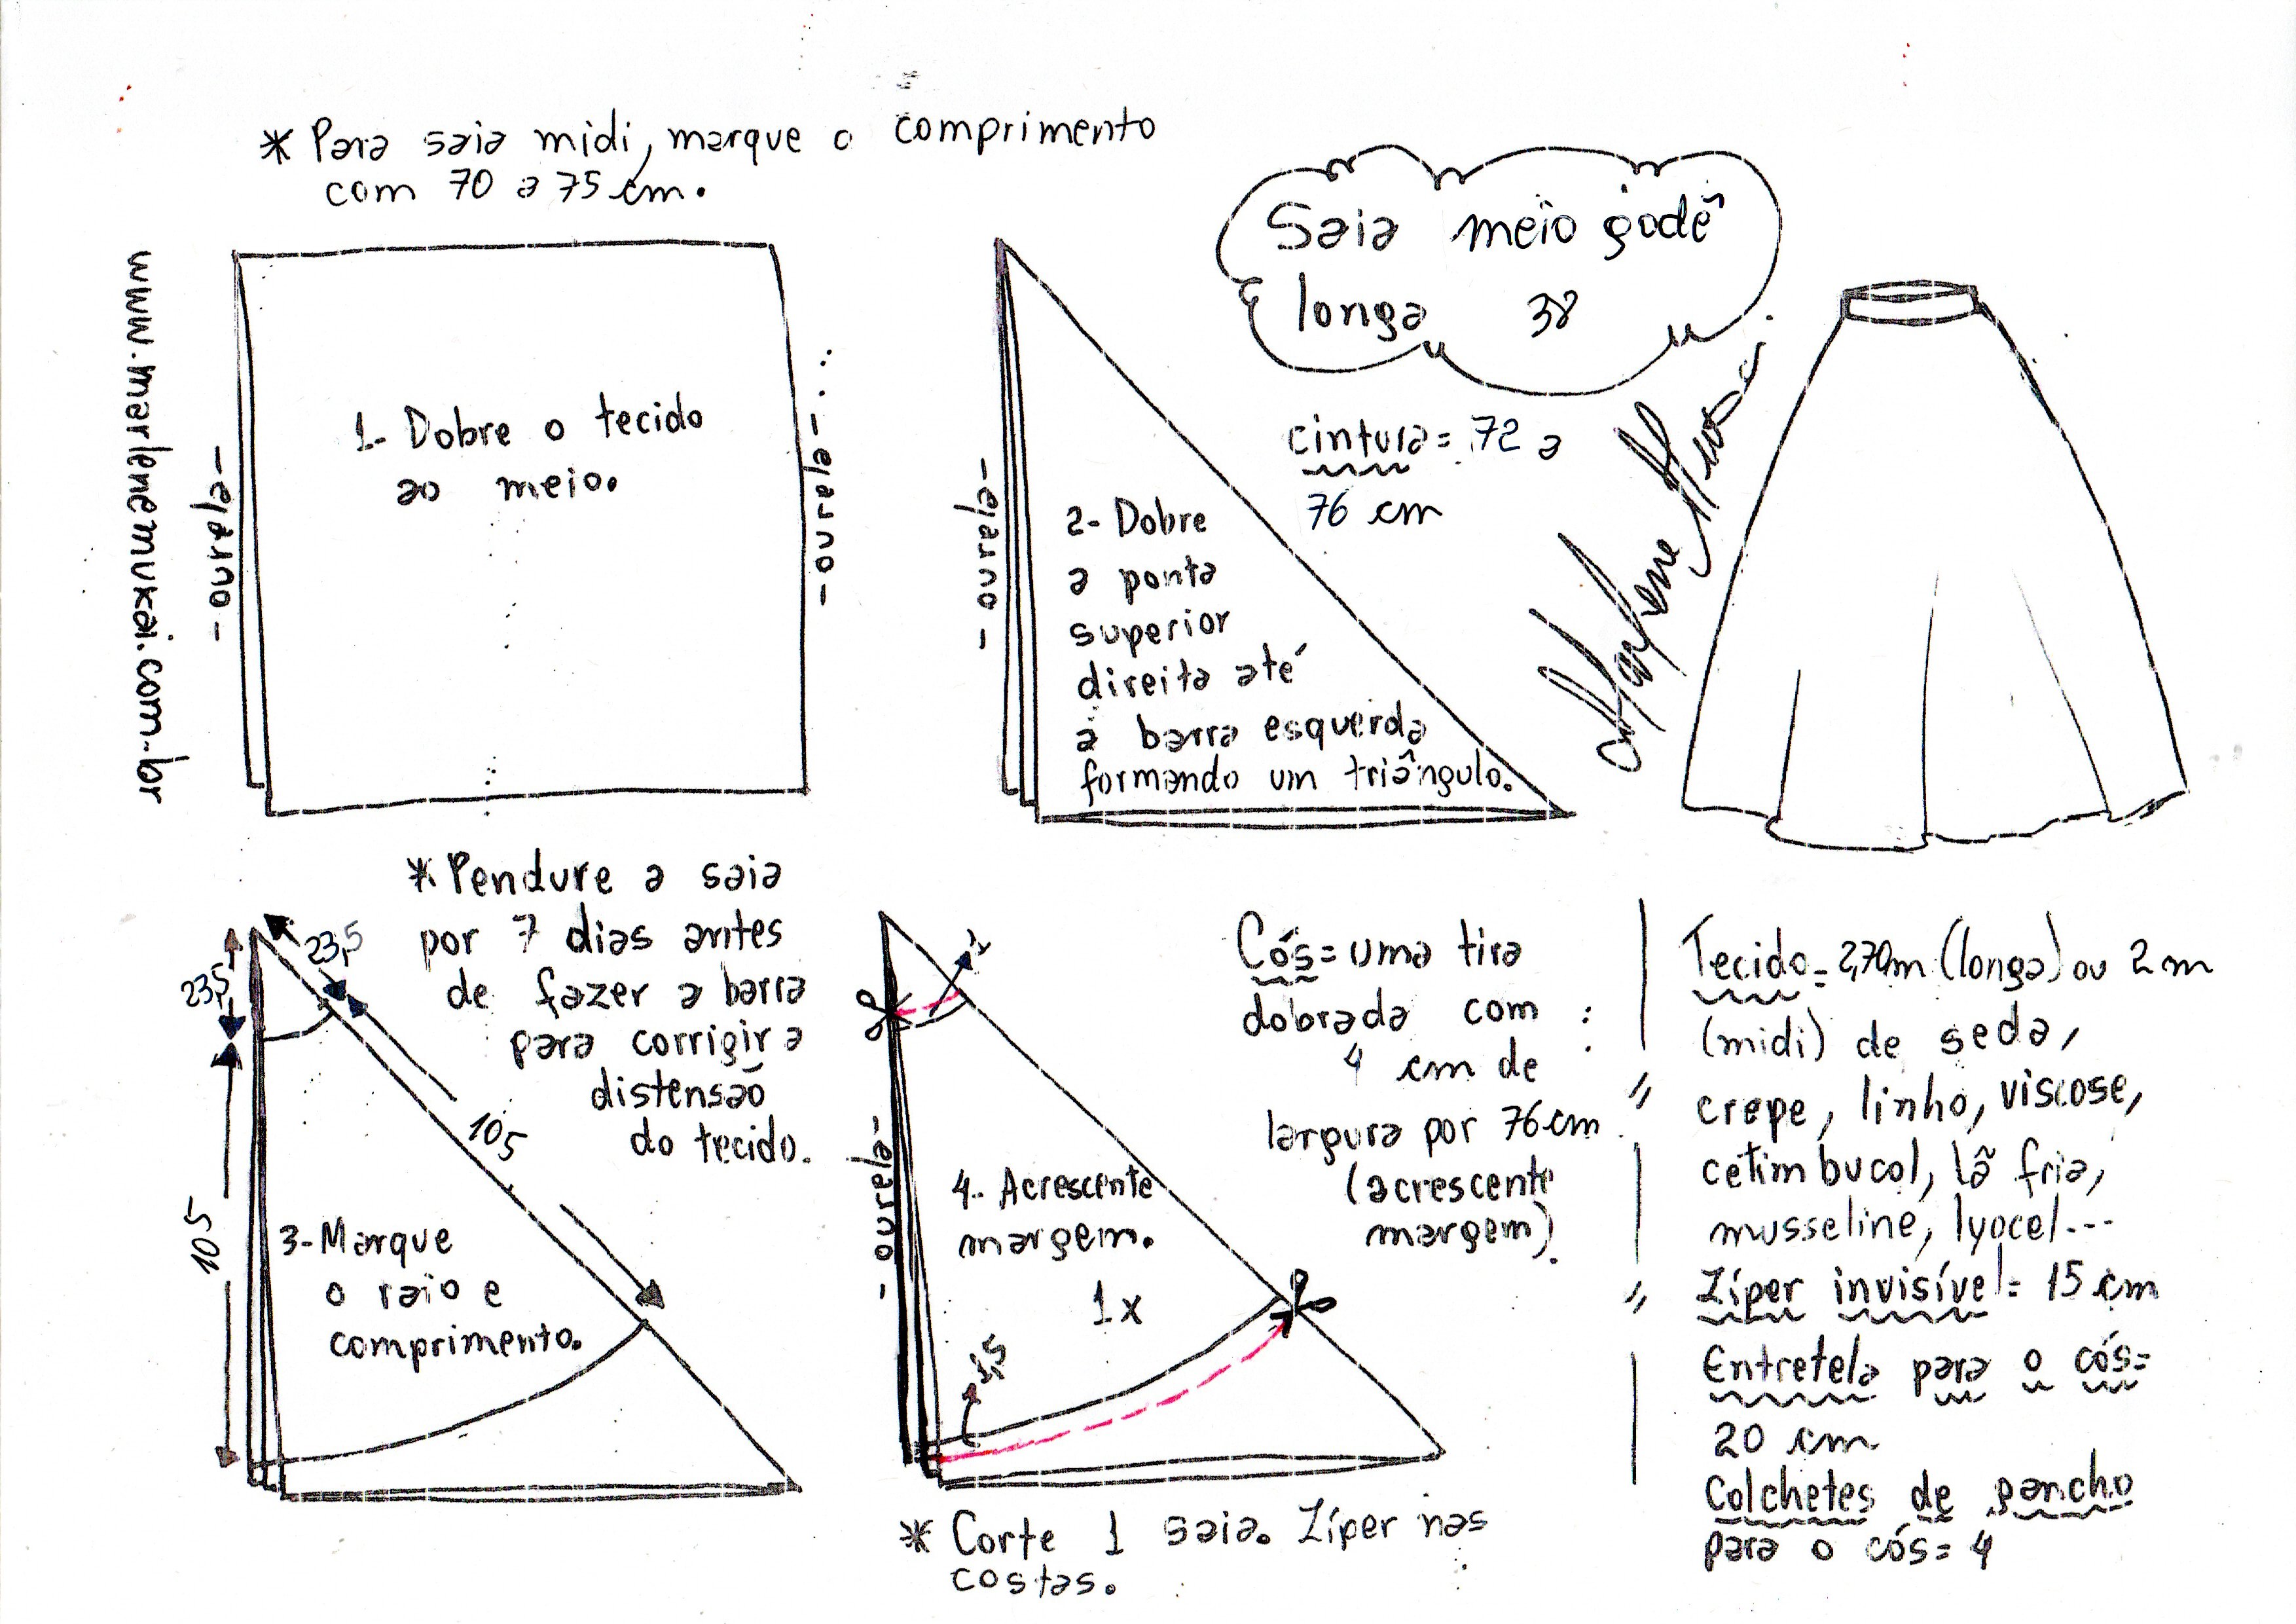 * Para saia midi, marque o comprimento
com 70 a 75 cm.
Saia meio godê
longa 38
www.marlenemukai.com.br
- ourela -
1- Dobre o tecido
ao meio.
- ourela -
- ourela -
2- Dobre
a ponta
superior
direita até
a barra esquerda
formando um triângulo.
cintura = 72 a
76 cm
Marlene Mukai
* Pendure a saia
por 7 dias antes
de fazer a barra
para corrigir a
distensão
do tecido.
23,5
23,5
105
105
3- Marque
o raio e
comprimento.
- ourela -
4- Acrescente
margem.
1x
1,5
* Corte 1 saia. Zíper nas
costas.
Cós = uma tira
dobrada com
4 cm de
largura por 76 cm
(acrescente
margem).
Tecido = 2,70m (longa) ou 2 m
(midi) de seda,
crepe, linho, viscose,
cetim bucol, lã fria,
musseline, lyocel...
Zíper invisível = 15 cm
Entretela para o cós =
20 cm
Colchetes de gancho
para o cós = 4